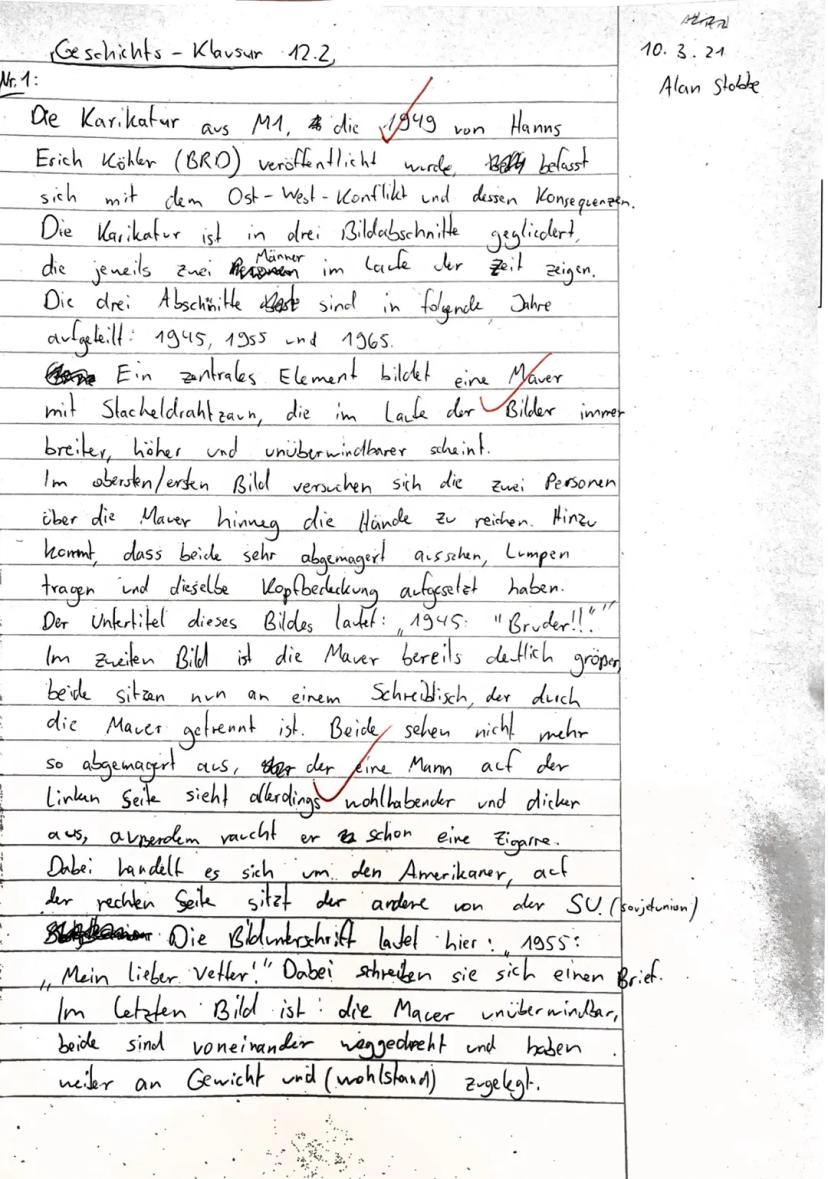 Geschichts - Klausur 12.2
10.3.21
Alan Stobbe
Nr. 1:
Die Karikatur aus M1, die 1949 von Hanns
Erich Köhler (BRD) veröffentlicht wurde, befasst
sich mit dem Ost-West-Konflikt und dessen Konsequenzen.
Die Karikatur ist in drei Bildabschnitte gegliedert,
die jeweils zwei Männer im Laufe der Zeit zeigen.
Die drei Abschnitte sind in folgende Jahre
aufgeteilt: 1945, 1955 und 1965.
Ein zentrales Element bildet eine Mauer
mit Stacheldrahtzaun, die im Laufe der Bilder immer
breiter, höher und unüberwindbarer scheint.
Im obersten/ersten Bild versuchen sich die zwei Personen
über die Mauer hinweg die Hände zu reichen. Hinzu
kommt, dass beide sehr abgemagert aussehen, Lumpen
tragen und dieselbe Kopfbedeckung aufgesetzt haben.
Der Untertitel dieses Bildes lautet: „1945: "Bruder!!"“
Im zweiten Bild ist die Mauer bereits deutlich größer,
beide sitzen nun an einem Schreibtisch, der durch
die Mauer getrennt ist. Beide sehen nicht mehr
so abgemagert aus, der eine Mann auf der
linken Seite sieht allerdings wohlhabender und dicker
aus, außerdem raucht er schon eine Zigarre.
Dabei handelt es sich um den Amerikaner, auf
der rechten Seite sitzt der andere von der SU. (Sovjetunion)
Die Bildunterschrift lautet hier: „1955:
„Mein lieber Vetter!“ Dabei schreiben sie sich einen Brief.
Im letzten Bild ist die Mauer unüberwindbar,
beide sind voneinander weggedreht und haben
weiter an Gewicht und (wohlstand) zugelegt.